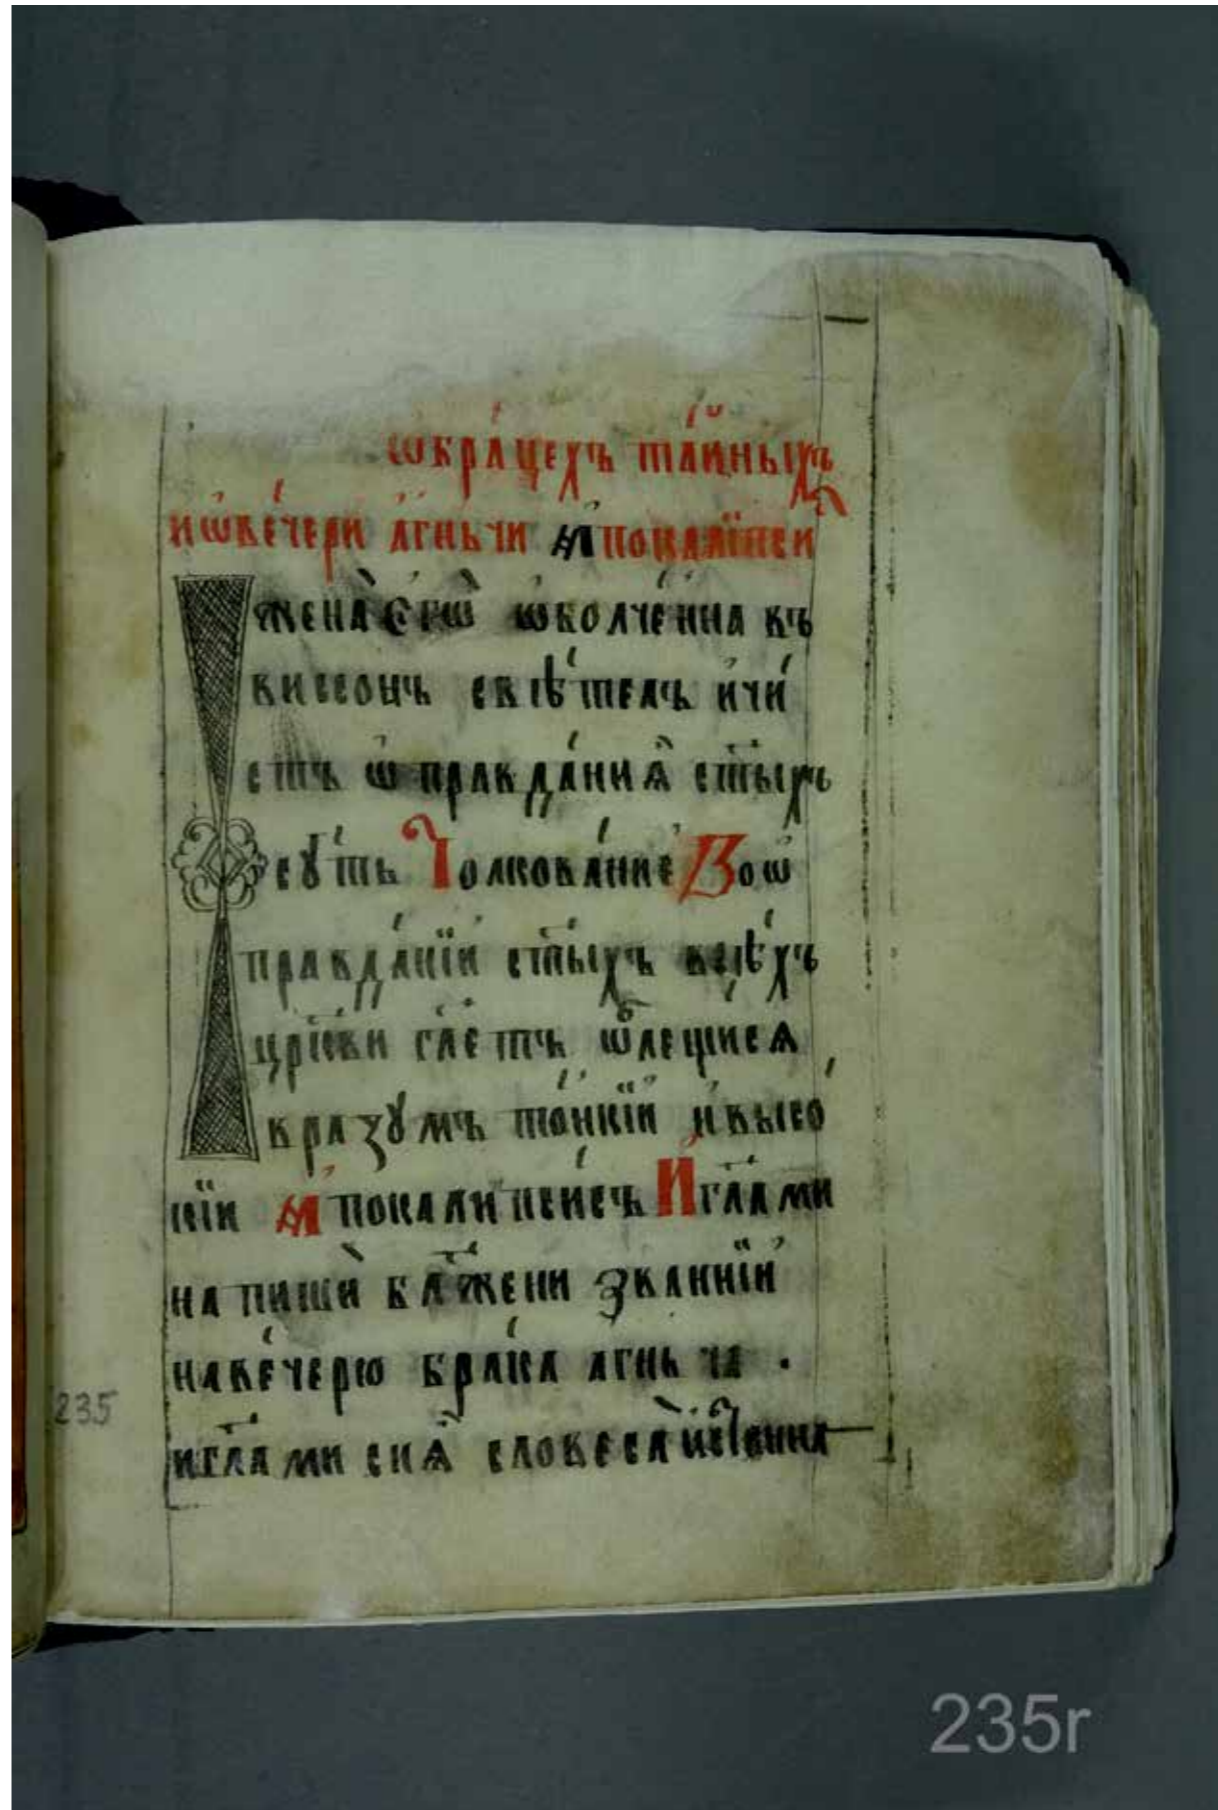 ѡбра́цехъ та́йныхъ
и ѡвече́ри а́гньчи А҆покали́пси
І жена̀ є҆гѡ̀ ѡ҆болче́нна въ
виссонъ свѣ́телъ и҆ чи́
стъ ѡ҆правда́ниꙗ ст҃ы́хъ
сꙋ́ть Толкова́ние Во ѡ҆
правда́нїи ст҃ы́хъ всѣ́хъ
цр҃кви гл҃етъ
в разꙋмъ то́нкїи и҆ высо́
кїи А҆покали́псисъ И҆ гл҃а ми
напишѝ бл҃жени званнїи
на ве́черю бра́ка агньча .
и гл҃а ми сиꙗ̀ словеса̀ и҆стинна
235
235r